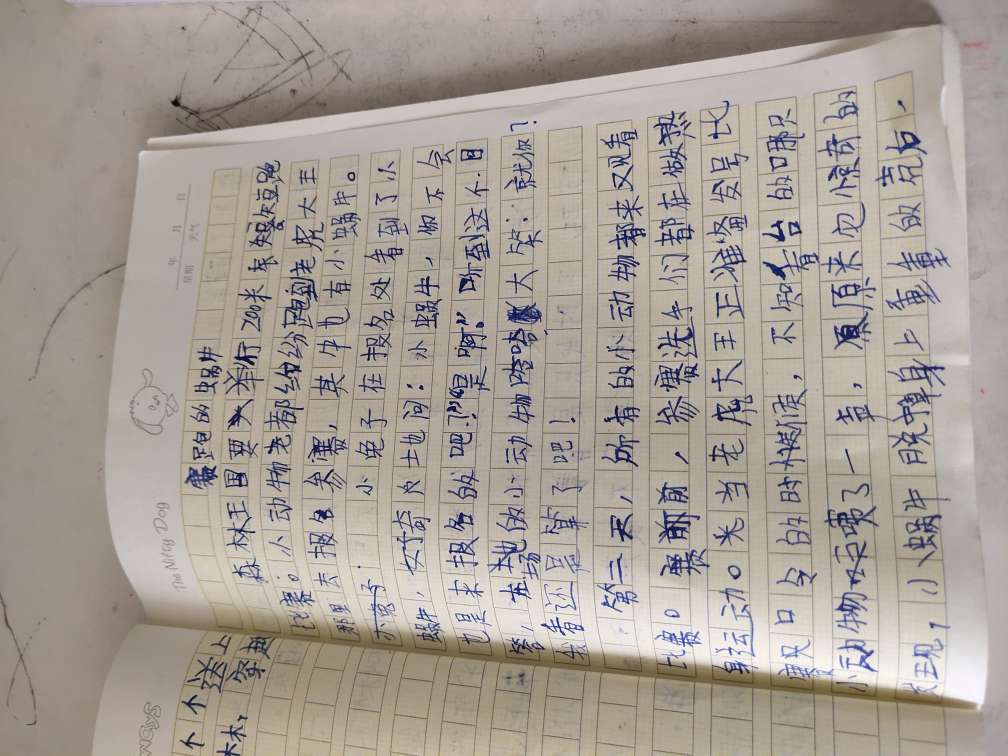 The Nifty Dog
年 月 日
星期 天气
赛跑的蜗牛
森林王国要举行200米东短跑
比赛。小动物老都纷纷跑到老虎大王
那里去报名参赛,其牛也有小蜗牛。
小兔子在报名处看到了小
蜗牛,好奇地问:小蜗牛,你不会
也是来报名的吧?”“是啊。”听到这个回
答,在场的小动物哈哈大笑:就你?
我看还是算了吧!
第二天,所有的小动物都来又观看
比赛。赛前,参赛选手们都在做热
身运动。当老虎大王正准备发号比
赛口令的时候,不知看台的哪只
小动物叫了一声,原来它惊奇的
发现,小蜗牛脱掉身上重重的壳。
个个送上
林,穿越